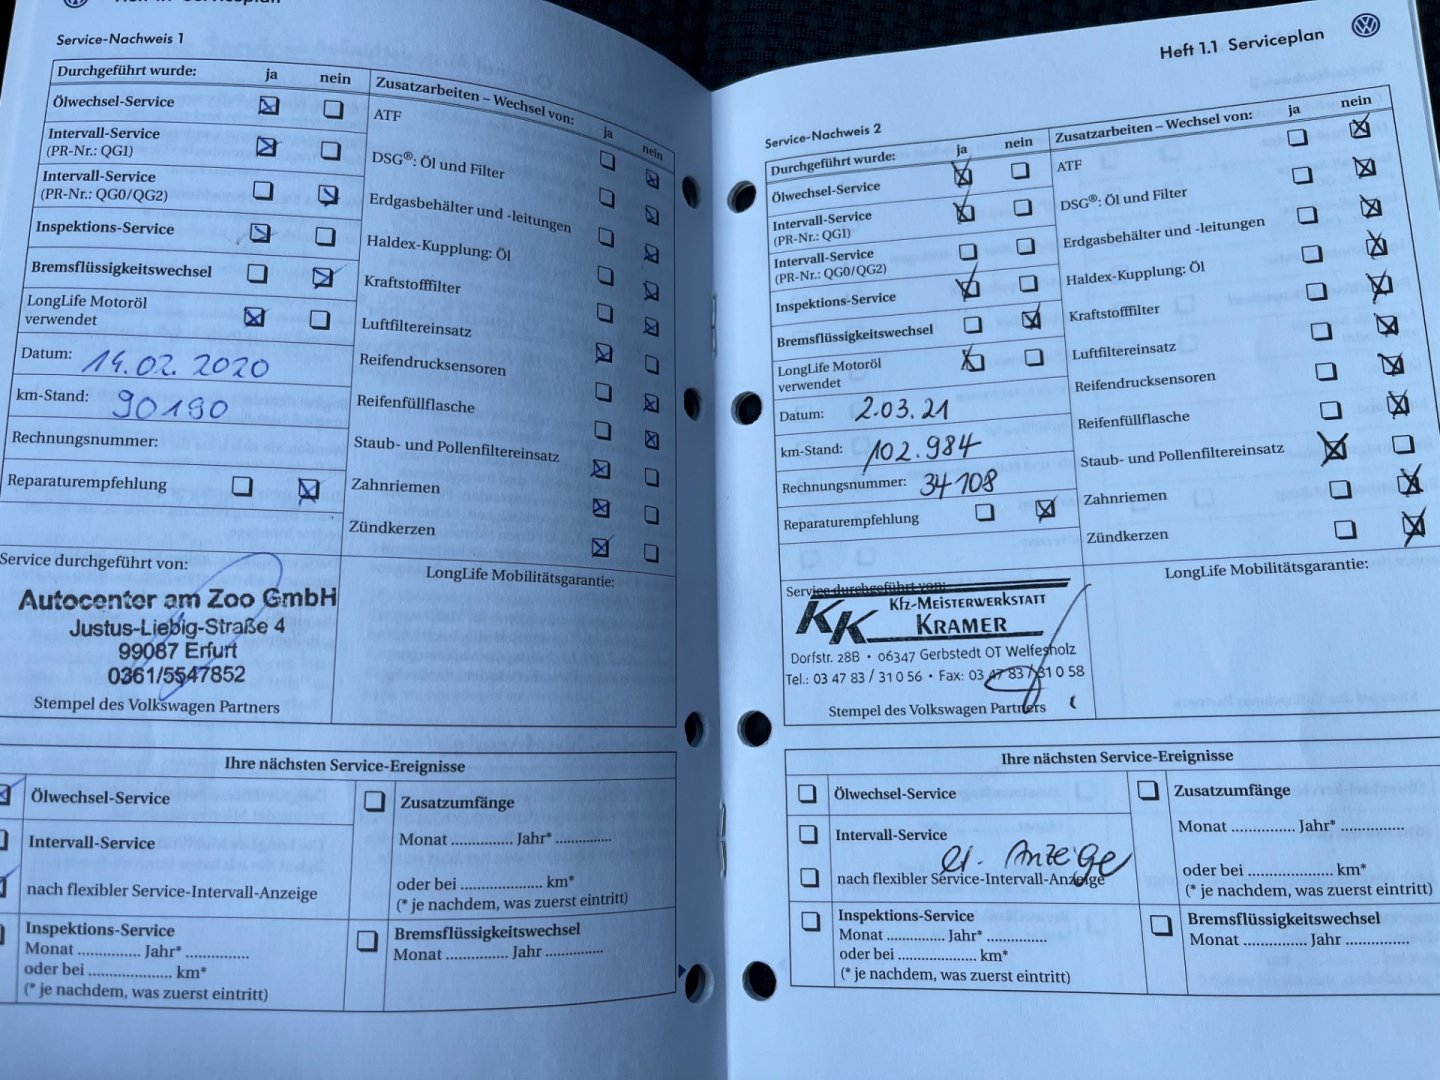 Heft 1.1 Serviceplan
Service-Nachweis 1
Durchgeführt wurde: ja nein
Ölwechsel-Service
Intervall-Service
(PR-Nr.: QG1)
Intervall-Service
(PR-Nr.: QG0/QG2)
Inspektions-Service
Bremsflüssigkeitswechsel
LongLife Motoröl
verwendet
Datum: 14.02.2020
km-Stand: 90190
Rechnungsnummer:
Reparaturempfehlung
Zusatzarbeiten – Wechsel von: ja nein
ATF
DSG®: Öl und Filter
Erdgasbehälter und -leitungen
Haldex-Kupplung: Öl
Kraftstofffilter
Luftfiltereinsatz
Reifendrucksensoren
Reifenfüllflasche
Staub- und Pollenfiltereinsatz
Zahnriemen
Zündkerzen
Service durchgeführt von:
Autocenter am Zoo GmbH
Justus-Liebig-Straße 4
99087 Erfurt
0361/5547852
Stempel des Volkswagen Partners
LongLife Mobilitätsgarantie:
Ihre nächsten Service-Ereignisse
Ölwechsel-Service
Intervall-Service
nach flexibler Service-Intervall-Anzeige
Inspektions-Service
Monat ............ Jahr* ...............
oder bei .................... km*
(* je nachdem, was zuerst eintritt)
Zusatzumfänge
Monat .............. Jahr* .............
oder bei .................... km*
(* je nachdem, was zuerst eintritt)
Bremsflüssigkeitswechsel
Monat ............ Jahr ..............
Heft 1.1 Serviceplan
Service-Nachweis 2
Durchgeführt wurde: ja nein
Ölwechsel-Service
Intervall-Service
(PR-Nr.: QG1)
Intervall-Service
(PR-Nr.: QG0/QG2)
Inspektions-Service
Bremsflüssigkeitswechsel
LongLife Motoröl
verwendet
Datum: 2.03.21
km-Stand: 102.984
Rechnungsnummer: 34108
Reparaturempfehlung
Zusatzarbeiten – Wechsel von: ja nein
ATF
DSG®: Öl und Filter
Erdgasbehälter und -leitungen
Haldex-Kupplung: Öl
Kraftstofffilter
Luftfiltereinsatz
Reifendrucksensoren
Reifenfüllflasche
Staub- und Pollenfiltereinsatz
Zahnriemen
Zündkerzen
Service durchgeführt von:
KK Kfz-Meisterwerkstatt
Kramer
Dorfstr. 28B • 06347 Gerbstedt OT Welfesholz
Tel.: 03 47 83 / 31 0 56 • Fax: 03 47 83 / 31 0 58
Stempel des Volkswagen Partners
LongLife Mobilitätsgarantie:
Ihre nächsten Service-Ereignisse
Ölwechsel-Service
Intervall-Service
Anzeige
nach flexibler Service-Intervall-Anzeige
Inspektions-Service
Monat ............ Jahr* ...............
oder bei .................... km*
(* je nachdem, was zuerst eintritt)
Zusatzumfänge
Monat .............. Jahr* ...............
oder bei .................... km*
(* je nachdem, was zuerst eintritt)
Bremsflüssigkeitswechsel
Monat ............ Jahr ...............